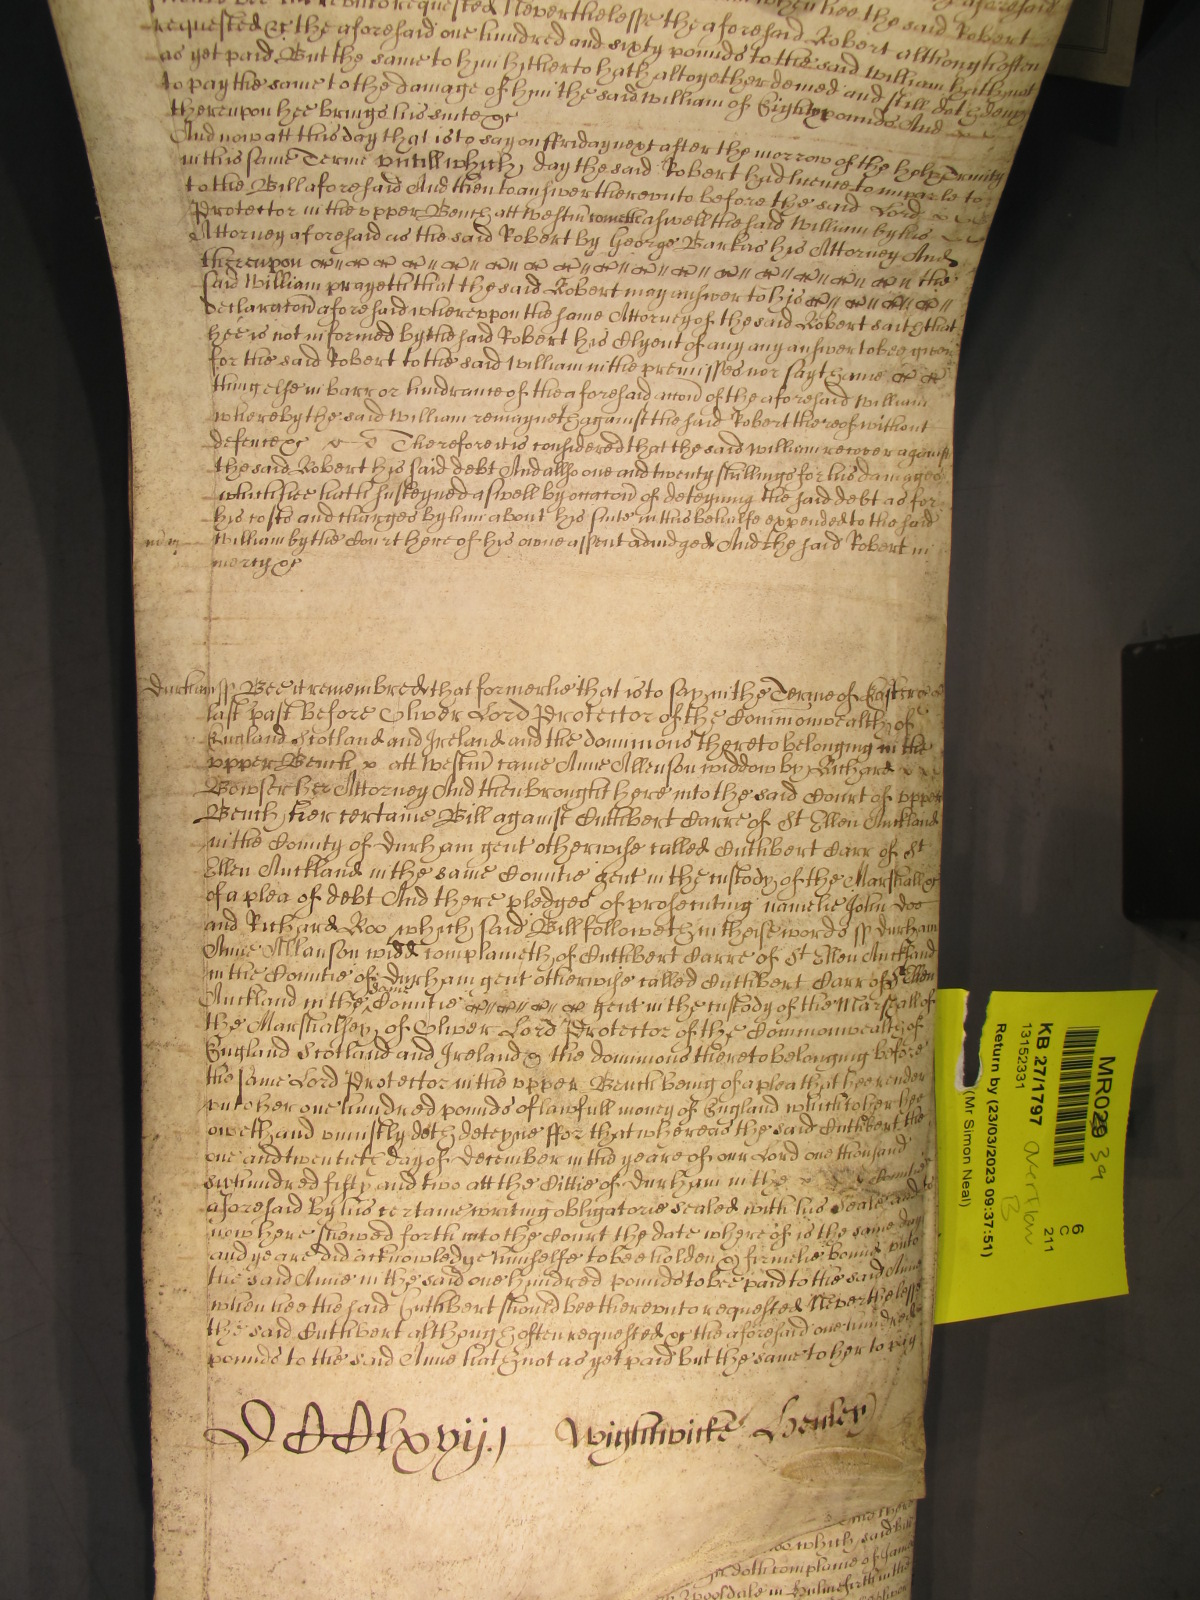 requested &c the aforesaid one hundred and sixty pounds to the said William hath not
as yet paid But the same to him hitherto hath altogether denied and still doth deny
to pay the same to the damage of him the said William of Eighty pounds And
thereupon hee brings his suite &c
And now att this day that is to say on ffriday next after the morrow of the holy Trinity
in this same Terme untill which day the said Robert had licence to imparle to
to the Bill aforesaid And then to answer thereunto before the said Lord
Protector in the upper Bench att Westm come aswell the said William by his
Attorney aforesaid as the said Robert by George Barkas his Attorney And
thereupon the
said William prayeth that the said Robert may answer to his
declaracon aforesaid whereupon the same Attorney of the said Robert saith that
hee is not informed by the said Robert his Clyent of any any answer to bee given
for the said Robert to the said William in the premisses nor sayth anie
thing else in barr or hindrance of the aforesaid accon of the aforesaid William
whereby the said William remayneth against the said Robert thereof without
defence &c Therefore it is considered that the said William recover against
the said Robert his said debt And allso one and twenty shillings for his damages
which hee hath susteyned aswell by occacon of deteyning the said debt as for
his costs and charges by him about his suite in this behalfe expended to the said
William by the Court here of his owne assent adiudged And the said Robert in
mercy &c
Durham ss Bee it remembred that formerlie that is to say in the Terme of Easter
last past before Oliver Lord Protector of the Commonwealth of
England Scotland and Ireland and the dominions thereto belonging in the
upper Bench att Westm came Anne Allenson widdow by Richard
Bowser her Attorney And then brought here into the said Court of upper
Bench her certaine Bill against Cuthbert Carre of St Ellen Auckland
in the County of Durham gent otherwise called Cuthbert Carr of St
Ellen Auckland in the same Countie gent in the custody of the Marshall &c
of a plea of debt And there pledges of prosecuting namelie John Doe
and Richard Roo which said Bill followeth in theise words ss Durham
Anne Allanson widd complaineth of Cuthbert Carre of St Ellen Auckland
in the Countie of Durham gent otherwise called Cuthbert Carr of St Ellen
Auckland in the same Countie gent in the custody of the Marshall of
the Marshalsey of Oliver Lord Protector of the Commonwealth of
England Scotland and Ireland & the dominions thereto belonging before
the same Lord Protector in the upper Bench being of a plea that hee render
unto her one hundred pounds of lawfull money of England which to her hee
oweth and uniustly doth deteyne ffor that whereas the said Cuthbert the
one and twentieth day of December in the yeare of our Lord one thousand
six hundred fifty and two att the Cittie of Durham in the Countie
aforesaid by his certaine writing obligatorie sealed with his Seale and to
now here shewed forth into the Court the date whereof is the same day
and yeare did acknowledge himselfe to bee holden & firmelie bound unto
the said Anne in the said one hundred pounds to bee paid to the said Anne
when hee the said Cuthbert should bee thereunto requested Neverthelesse
the said Cuthbert although often requested &c the aforesaid one hundred
pounds to the said Anne hath not as yet paid but the same to her to pay
Wightwicke Henley
which said
doth complaine of
MR029
39
6
C
211
KB 27/1797
13152331
Return by (23/03/2023 09:37:51)
(Mr Simon Neal)